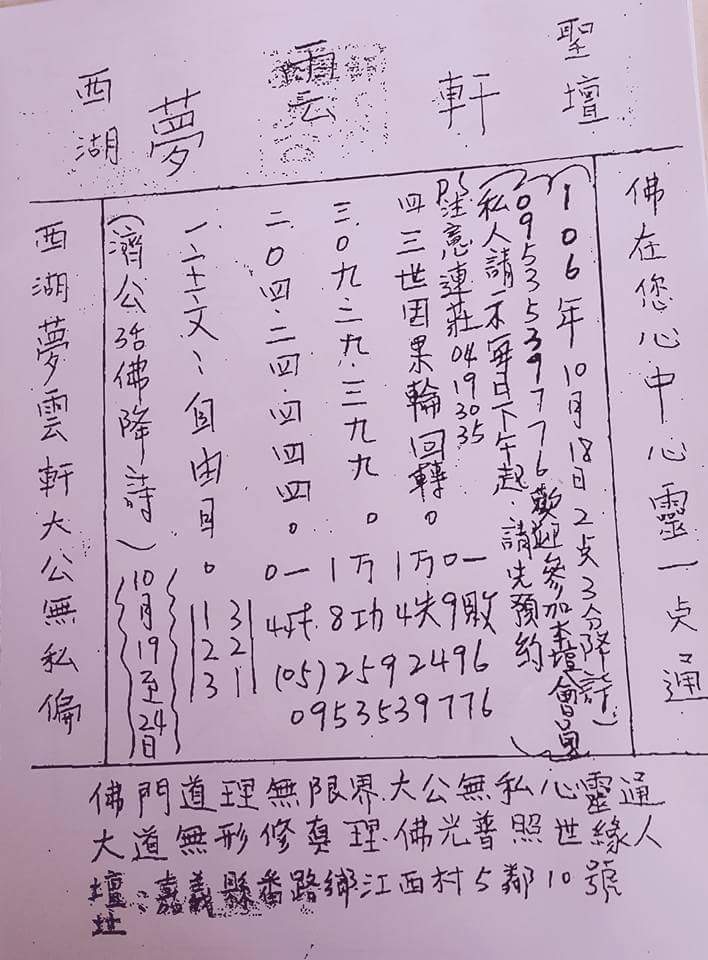 西湖 夢雲軒 聖壇
佛在您心中心靈一点通
(106年10月18日2点3分降詩)
0953539776歡迎參加本壇會員)
(私人請示每日下午起.請先預約
PS注意連莊04 19 30 35
四三世因果輪回轉。
三.0九.二九.三九九。
二.0四.二四.四四四。
一、二十六文、自由自。
(濟公活佛降詩)
10月19至24日
1 3
2 2
3 1
0一 1万 1万 0一
4成 8功 4失 9敗
(05)2592496
0953539776
西湖夢雲軒大公無私偏
佛門道理無限界.大公無私心靈通
大道無形修真理.佛光普照世緣人
壇址:嘉義縣番路鄉江西村5鄰10號